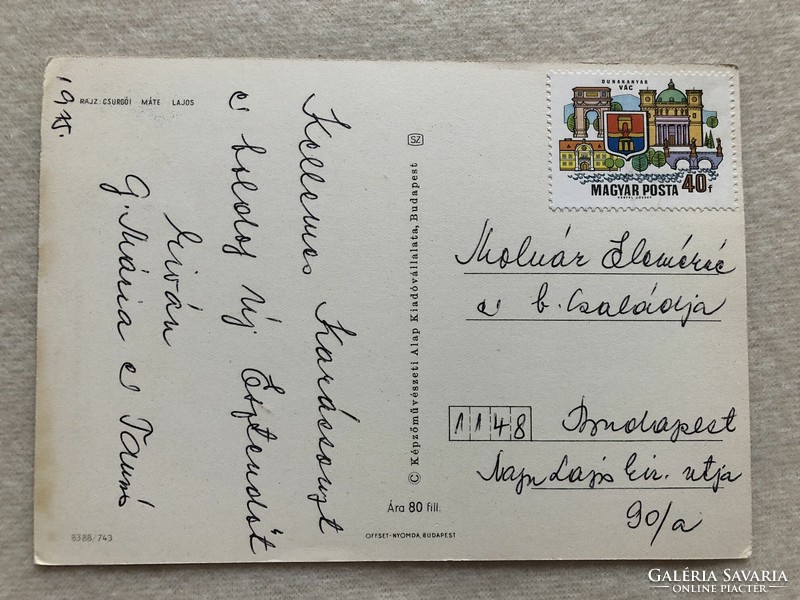 1975.
RAJZ: CSURGÓI MÁTÉ LAJOS
Kellemes Karácsonyt
és boldog Új Esztendőt
kíván
G. Mária és Tamás
8388/743
SZ
© Képzőművészeti Alap Kiadóvállalata, Budapest
Ára 80 fill.
OFFSET-NYOMDA, BUDAPEST
DUNAKANYAR
VÁC
MAGYAR POSTA 40 f
Molnár Elemérék
és b. Családja
1148 Budapest
Nagy Lajos kir. utja
90/a
GALÉRIA SAVARIA
ONLINE PIACTÉR